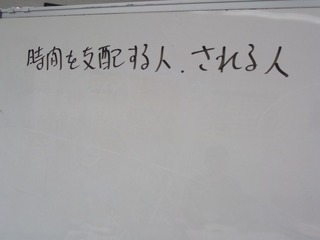 時間を支配する人.される人